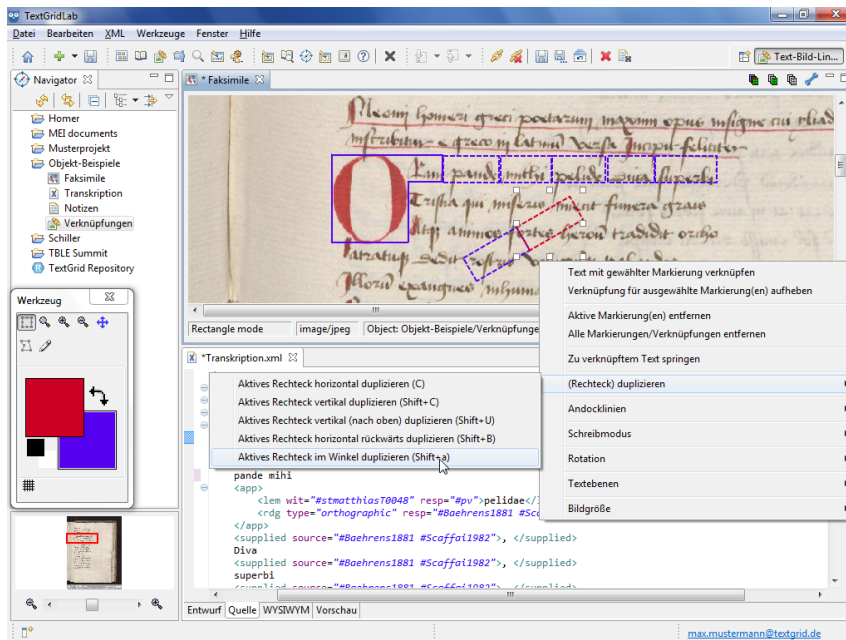 TextGridLab
Datei Bearbeiten XML Werkzeuge Fenster Hilfe
Text-Bild-Lin...
Navigator
Homer
MEI documents
Musterprojekt
Objekt-Beispiele
Faksimile
Transkription
Notizen
Verknüpfungen
Schiller
TBLE Summit
TextGrid Repository
Werkzeug
* Faksimile
homeri greci poetarum
opus insigne cui
e greco in latinu versa Incipit feliciter
pande mihi pelide superbi
Tristia qui miseris funera grais
Atq animos fortes tradidit orcho
Rectangle mode image/jpeg Object: Objekt-Beispiele/Verknüpfunge
Text mit gewählter Markierung verknüpfen
Verknüpfung für ausgewählte Markierung(en) aufheben
Aktive Markierung(en) entfernen
Alle Markierungen/Verknüpfungen entfernen
Zu verknüpftem Text springen
(Rechteck) duplizieren
Andocklinien
Schreibmodus
Rotation
Textebenen
Bildgröße
*Transkription.xml
Aktives Rechteck horizontal duplizieren (C)
Aktives Rechteck vertikal duplizieren (Shift+C)
Aktives Rechteck vertikal (nach oben) duplizieren (Shift+U)
Aktives Rechteck horizontal rückwärts duplizieren (Shift+B)
Aktives Rechteck im Winkel duplizieren (Shift+a)
pande mihi
<app>
<lem wit="#stmatthiasT0048" resp="#pv">pelidae</
<rdg type="orthographic" resp="#Baehrens1881 #Sc
</app>
<supplied source="#Baehrens1881 #Scaffai1982">, </supplied>
Diva
<supplied source="#Baehrens1881 #Scaffai1982">, </supplied>
superbi
<supplied source="#Baehrens1881 #Scaffai1982">, </supplied>
Entwurf Quelle WYSIWYM Vorschau
max.mustermann@textgrid.de